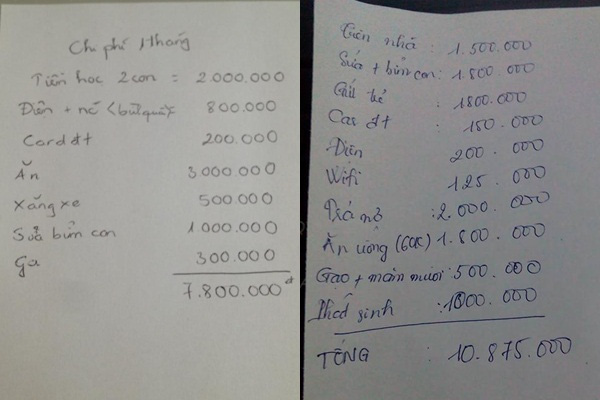 Chi phí 1 tháng
Tiền học 2 con = 2.000.000
Điện + nước (bình quân) 800.000
Card đt 200.000
Ăn 3.000.000
Xăng xe 500.000
Sữa bỉm con 1.000.000
Ga 300.000
7.800.000đ
Tiền nhà : 1.500.000
Sữa + bỉm con: 1.800.000
Gửi trẻ : 1800.000
Card đt : 150.000
Điện 200.000
Wifi 125.000
Trả nợ : 2.000.000
Ăn uống (60k) 1.800.000
Gạo + mắm muối: 500.000
Phát sinh : 1000.000
TỔNG : 10.875.000